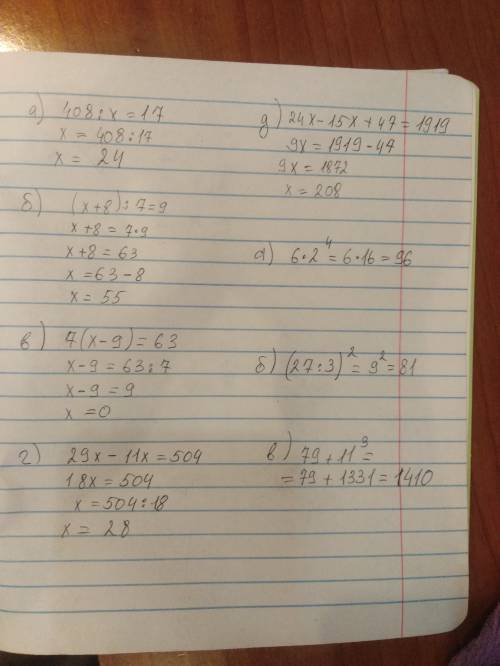 а) 408 : x = 17
x = 408 : 17
x = 24
б) (x+8) : 7 = 9
x+8 = 7·9
x+8 = 63
x = 63 - 8
x = 55
в) 7(x-9) = 63
x-9 = 63 : 7
x-9 = 9
x = 0
г) 29x - 11x = 504
18x = 504
x = 504 : 18
x = 28
д) 24x - 15x + 47 = 1919
9x = 1919 - 47
9x = 1872
x = 208
а) 6·2⁴ = 6·16 = 96
б) (27:3)² = 9² = 81
в) 79 + 11³ =
= 79 + 1331 = 1410